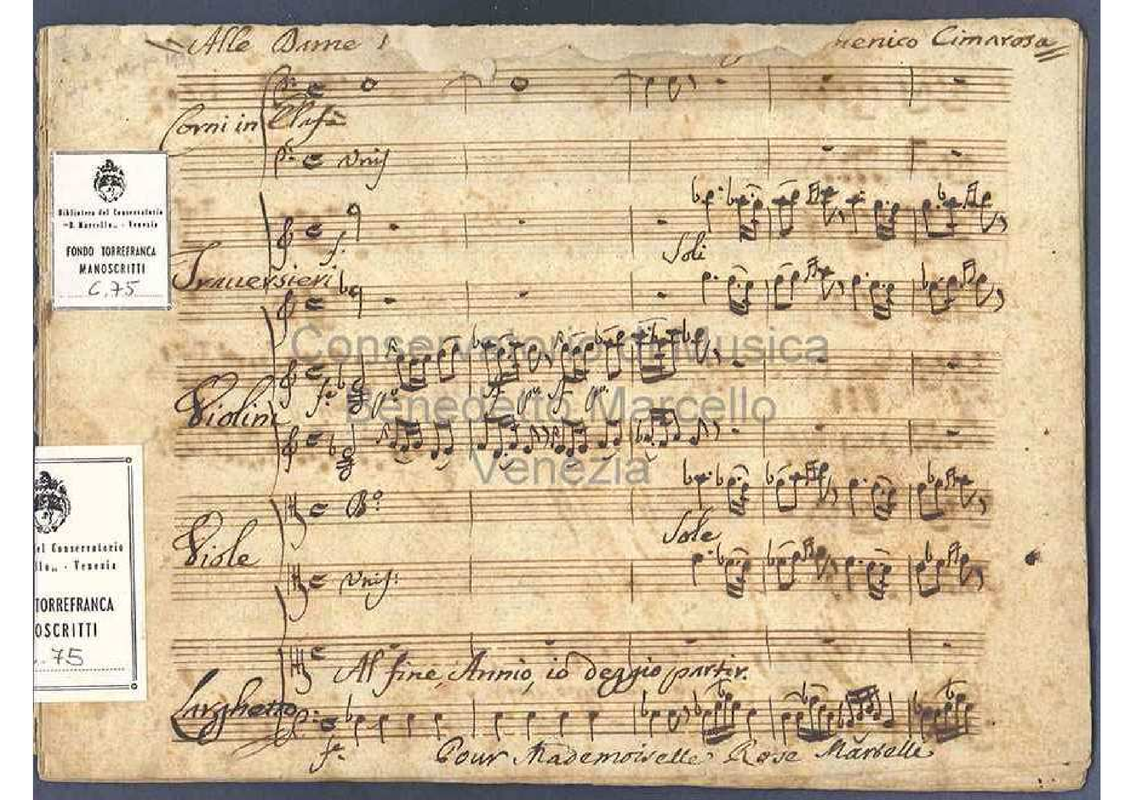 Alle Dame
menico Cimarosa
Corni in Elafà
Unis
f.
Soli
Traversieri
Biblioteca del Conservatorio
"B. Marcello" - Venezia
FONDO TORREFRANCA
MANOSCRITTI
C. 75
Conservatorio di Musica
Benedetto Marcello
Venezia
Violini
Bº
Sole
Viole
Unis:
del Conservatorio
- Venezia
TORREFRANCA
OSCRITTI
. 75
Al fine, Annio, io deggio partir.
Larghetto
f.
Pour Mademoiselle Rose